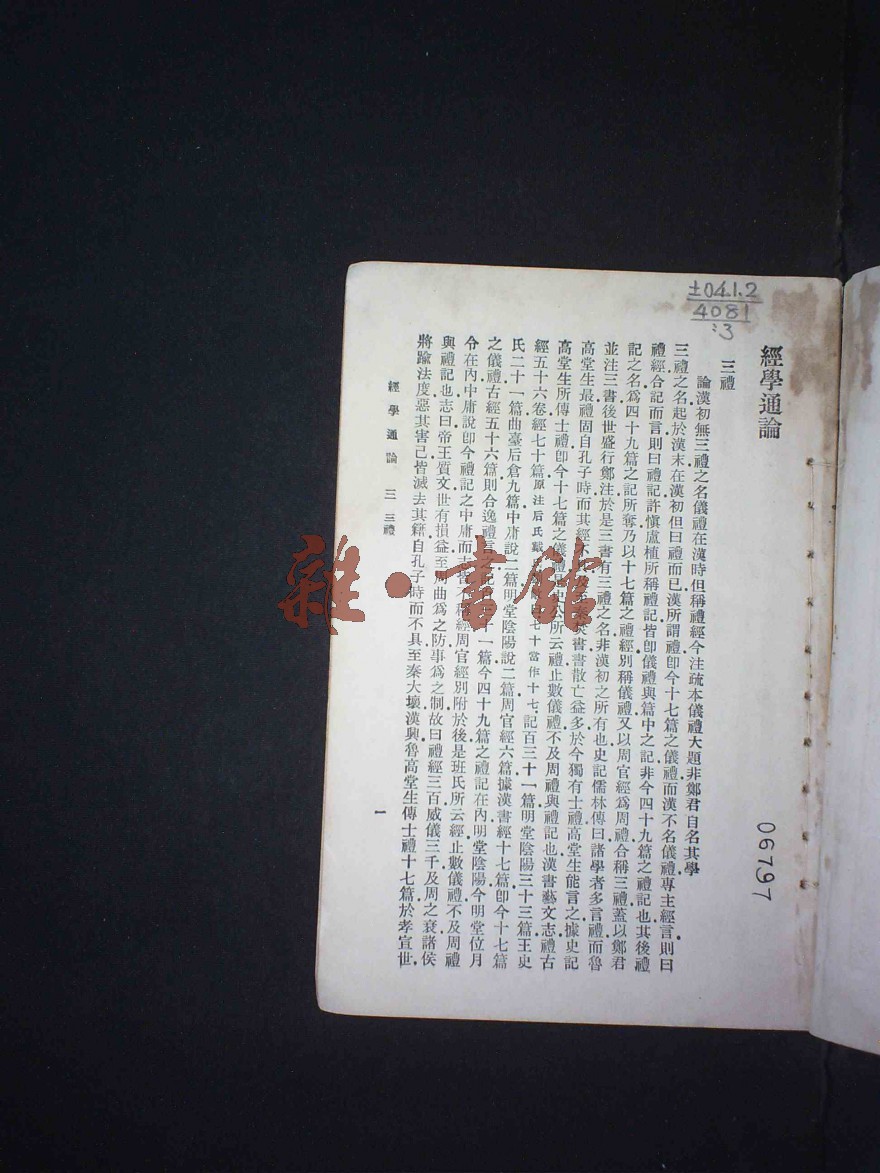 ±04.1.2
4081
:3
經學通論
三禮
論漢初無三禮之名儀禮在漢時但稱禮經今注疏本儀禮大題非鄭君自名其學
三禮之名起於漢末在漢初但曰禮而已漢所謂禮卽今十七篇之儀禮而漢不名儀禮專主經言則曰
禮經合記而言則曰禮記許愼盧植所稱禮記皆卽儀禮與篇中之記非今四十九篇之禮記也其後禮
記之名爲四十九篇之記所奪乃以十七篇之禮經別稱儀禮又以周官經爲周禮合稱三禮蓋以鄭君
並注三書後世盛行鄭注於是三書有三禮之名非漢初之所有也史記儒林傳曰諸學者多言禮而魯
高堂生最禮固自孔子時而其經 書散亡益多於今獨有士禮高堂生能言之據史記
高堂生所傳士禮卽今十七篇之儀禮 所云禮止數儀禮不及周禮與禮記也漢書藝文志禮古
經五十六卷經七十篇原注后氏戴 七十當作十七記百三十一篇明堂陰陽三十三篇王史
氏二十一篇曲臺后倉九篇中庸說二篇明堂陰陽說二篇周官經六篇據漢書經十七篇卽今十七篇
之儀禮古經五十六篇則合逸禮言 記 十一篇今四十九篇之禮記在內明堂陰陽今明堂位月
令在內中庸說卽今禮記之中庸而志皆不稱經周官經別附於後是班氏所云經止數儀禮不及周禮
與禮記也志曰帝王質文世有損益至周曲爲之防事爲之制故曰禮經三百威儀三千及周之衰諸侯
將踰法度惡其害己皆滅去其籍自孔子時而不具至秦大壞漢興魯高堂生傳士禮十七篇於孝宣世
經學通論 三 三禮
一
06797
雜·書館